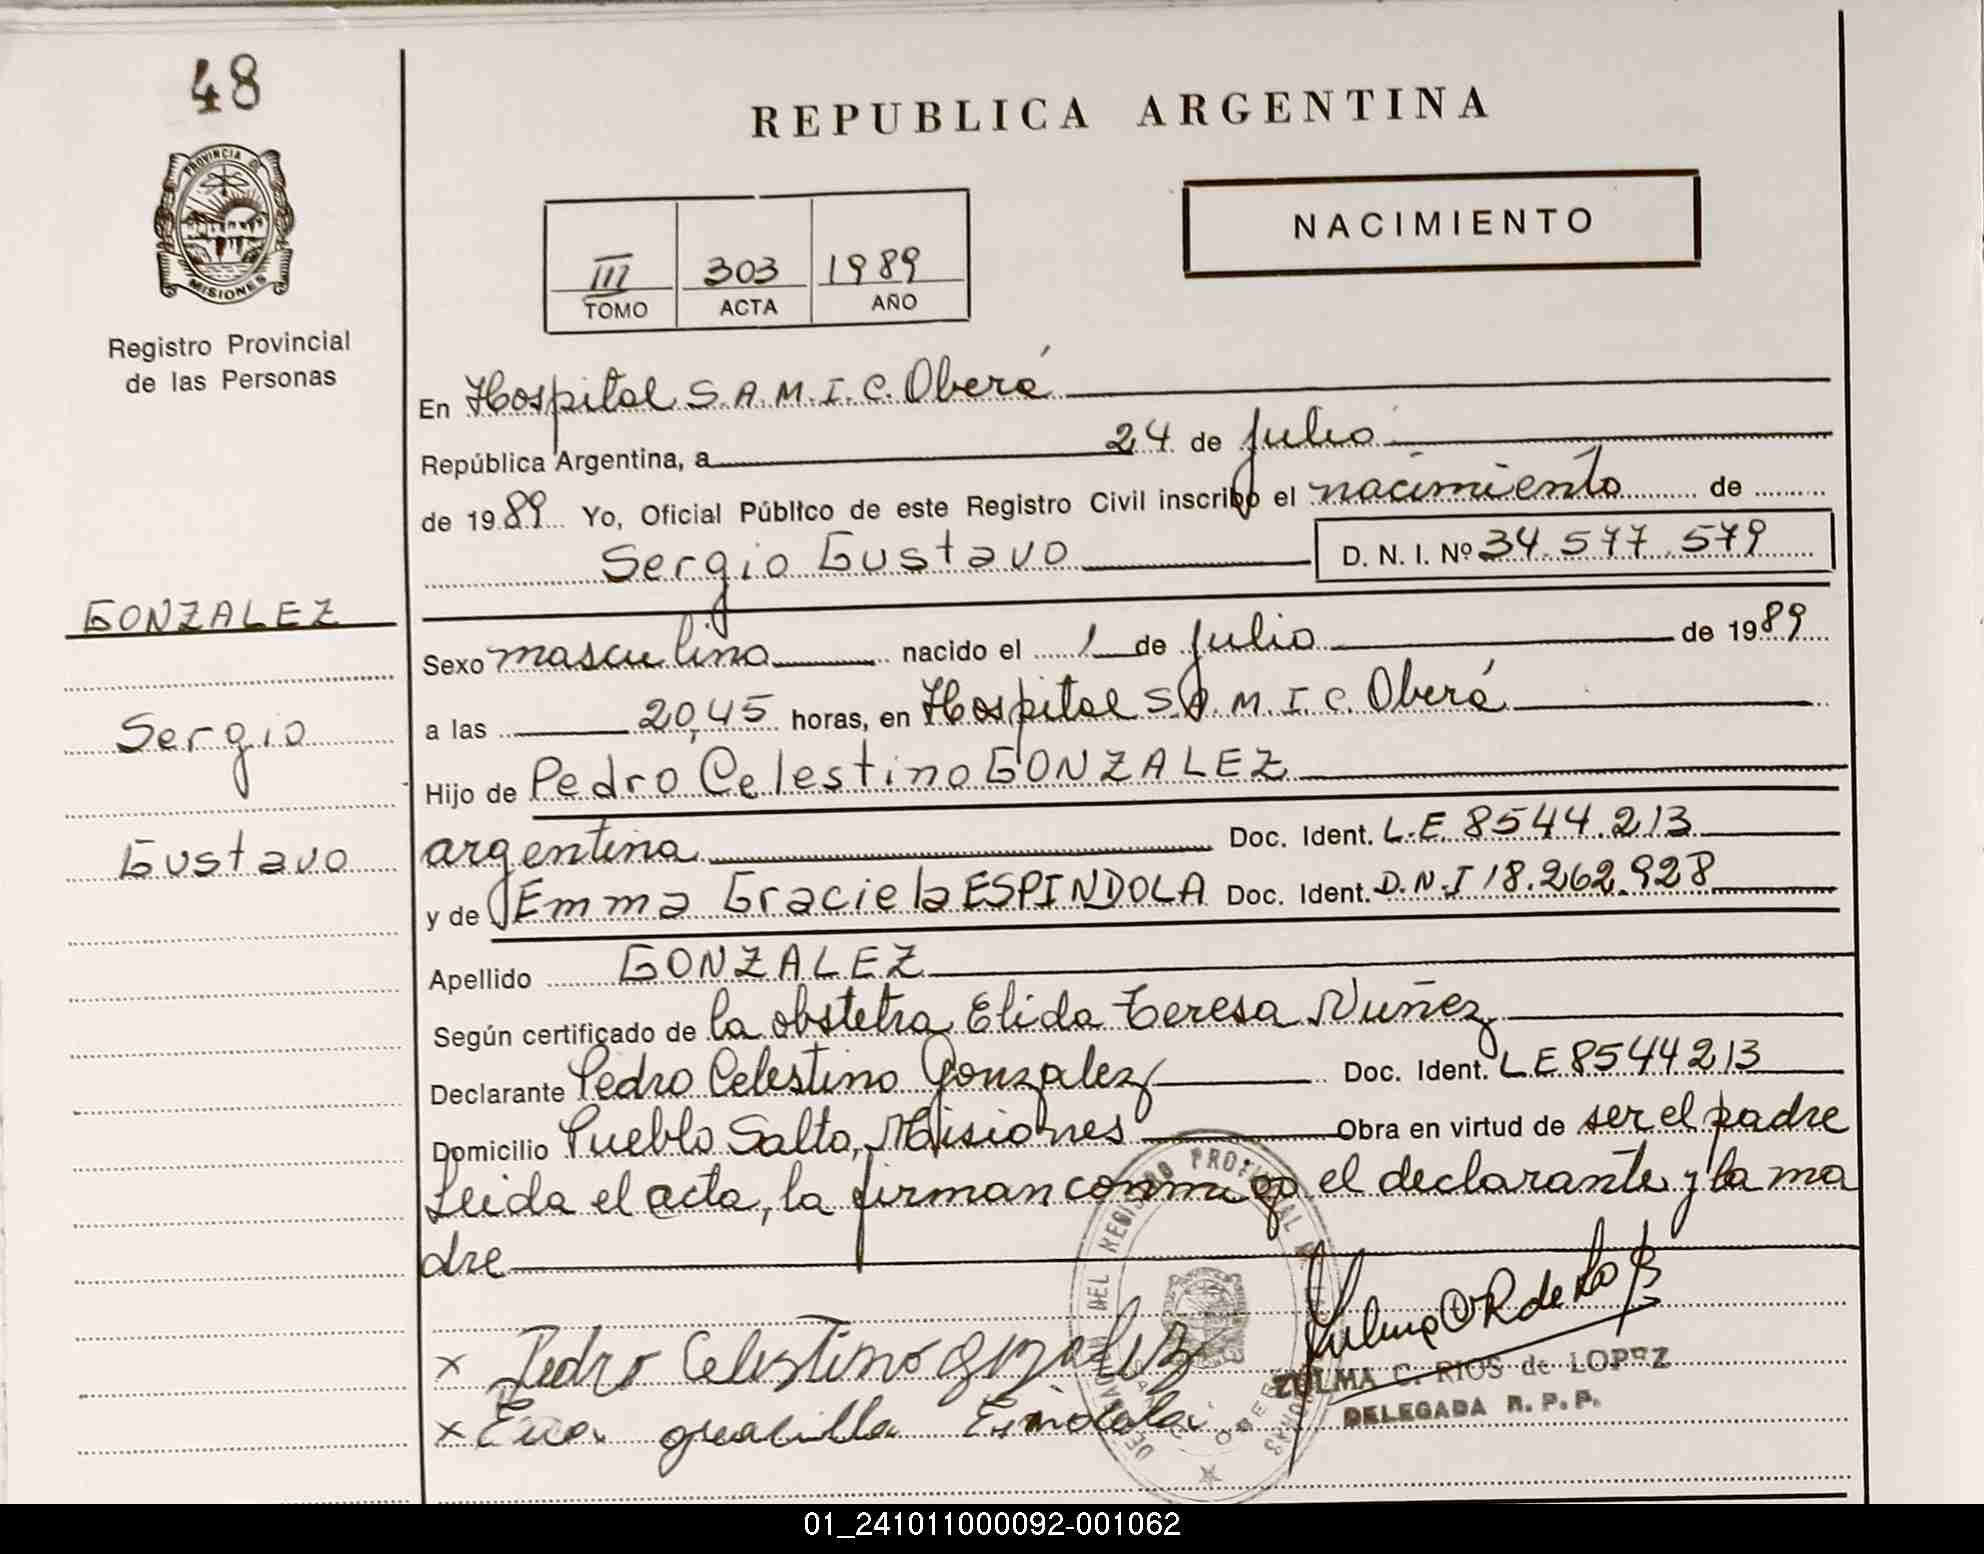 48
REPUBLICA ARGENTINA
PROVINCIA D
MISIONES
Registro Provincial
de las Personas
NACIMIENTO
III 303 1989
TOMO ACTA AÑO
En Hospital S.A.M.I.C. Oberá
República Argentina, a 24 de julio
de 1989 Yo, Oficial Público de este Registro Civil inscribo el nacimiento de
Sergio Gustavo D. N. I. Nº 34.577.579
GONZALEZ
Sergio
Gustavo
Sexo masculino nacido el 1 de julio de 1989
a las 20,45 horas, en Hospital S.A.M.I.C. Oberá
Hijo de Pedro Celestino GONZALEZ
argentina Doc. Ident. L.E. 8544.213
y de Emma Graciela ESPINDOLA Doc. Ident. D.N.I 18.262.928
Apellido GONZALEZ
Según certificado de la obstetra Elida Teresa Nuñez
Declarante Pedro Celestino Gonzalez Doc. Ident. L E 8544213
Domicilio Pueblo Salto, Misiones Obra en virtud de ser el padre
Leida el acta, la firman conmigo el declarante y la ma
dre
x Pedro Celestino
x
ZULMA C. RIOS de LOPEZ
DELEGADA R. P. P.
01_241011000092-001062